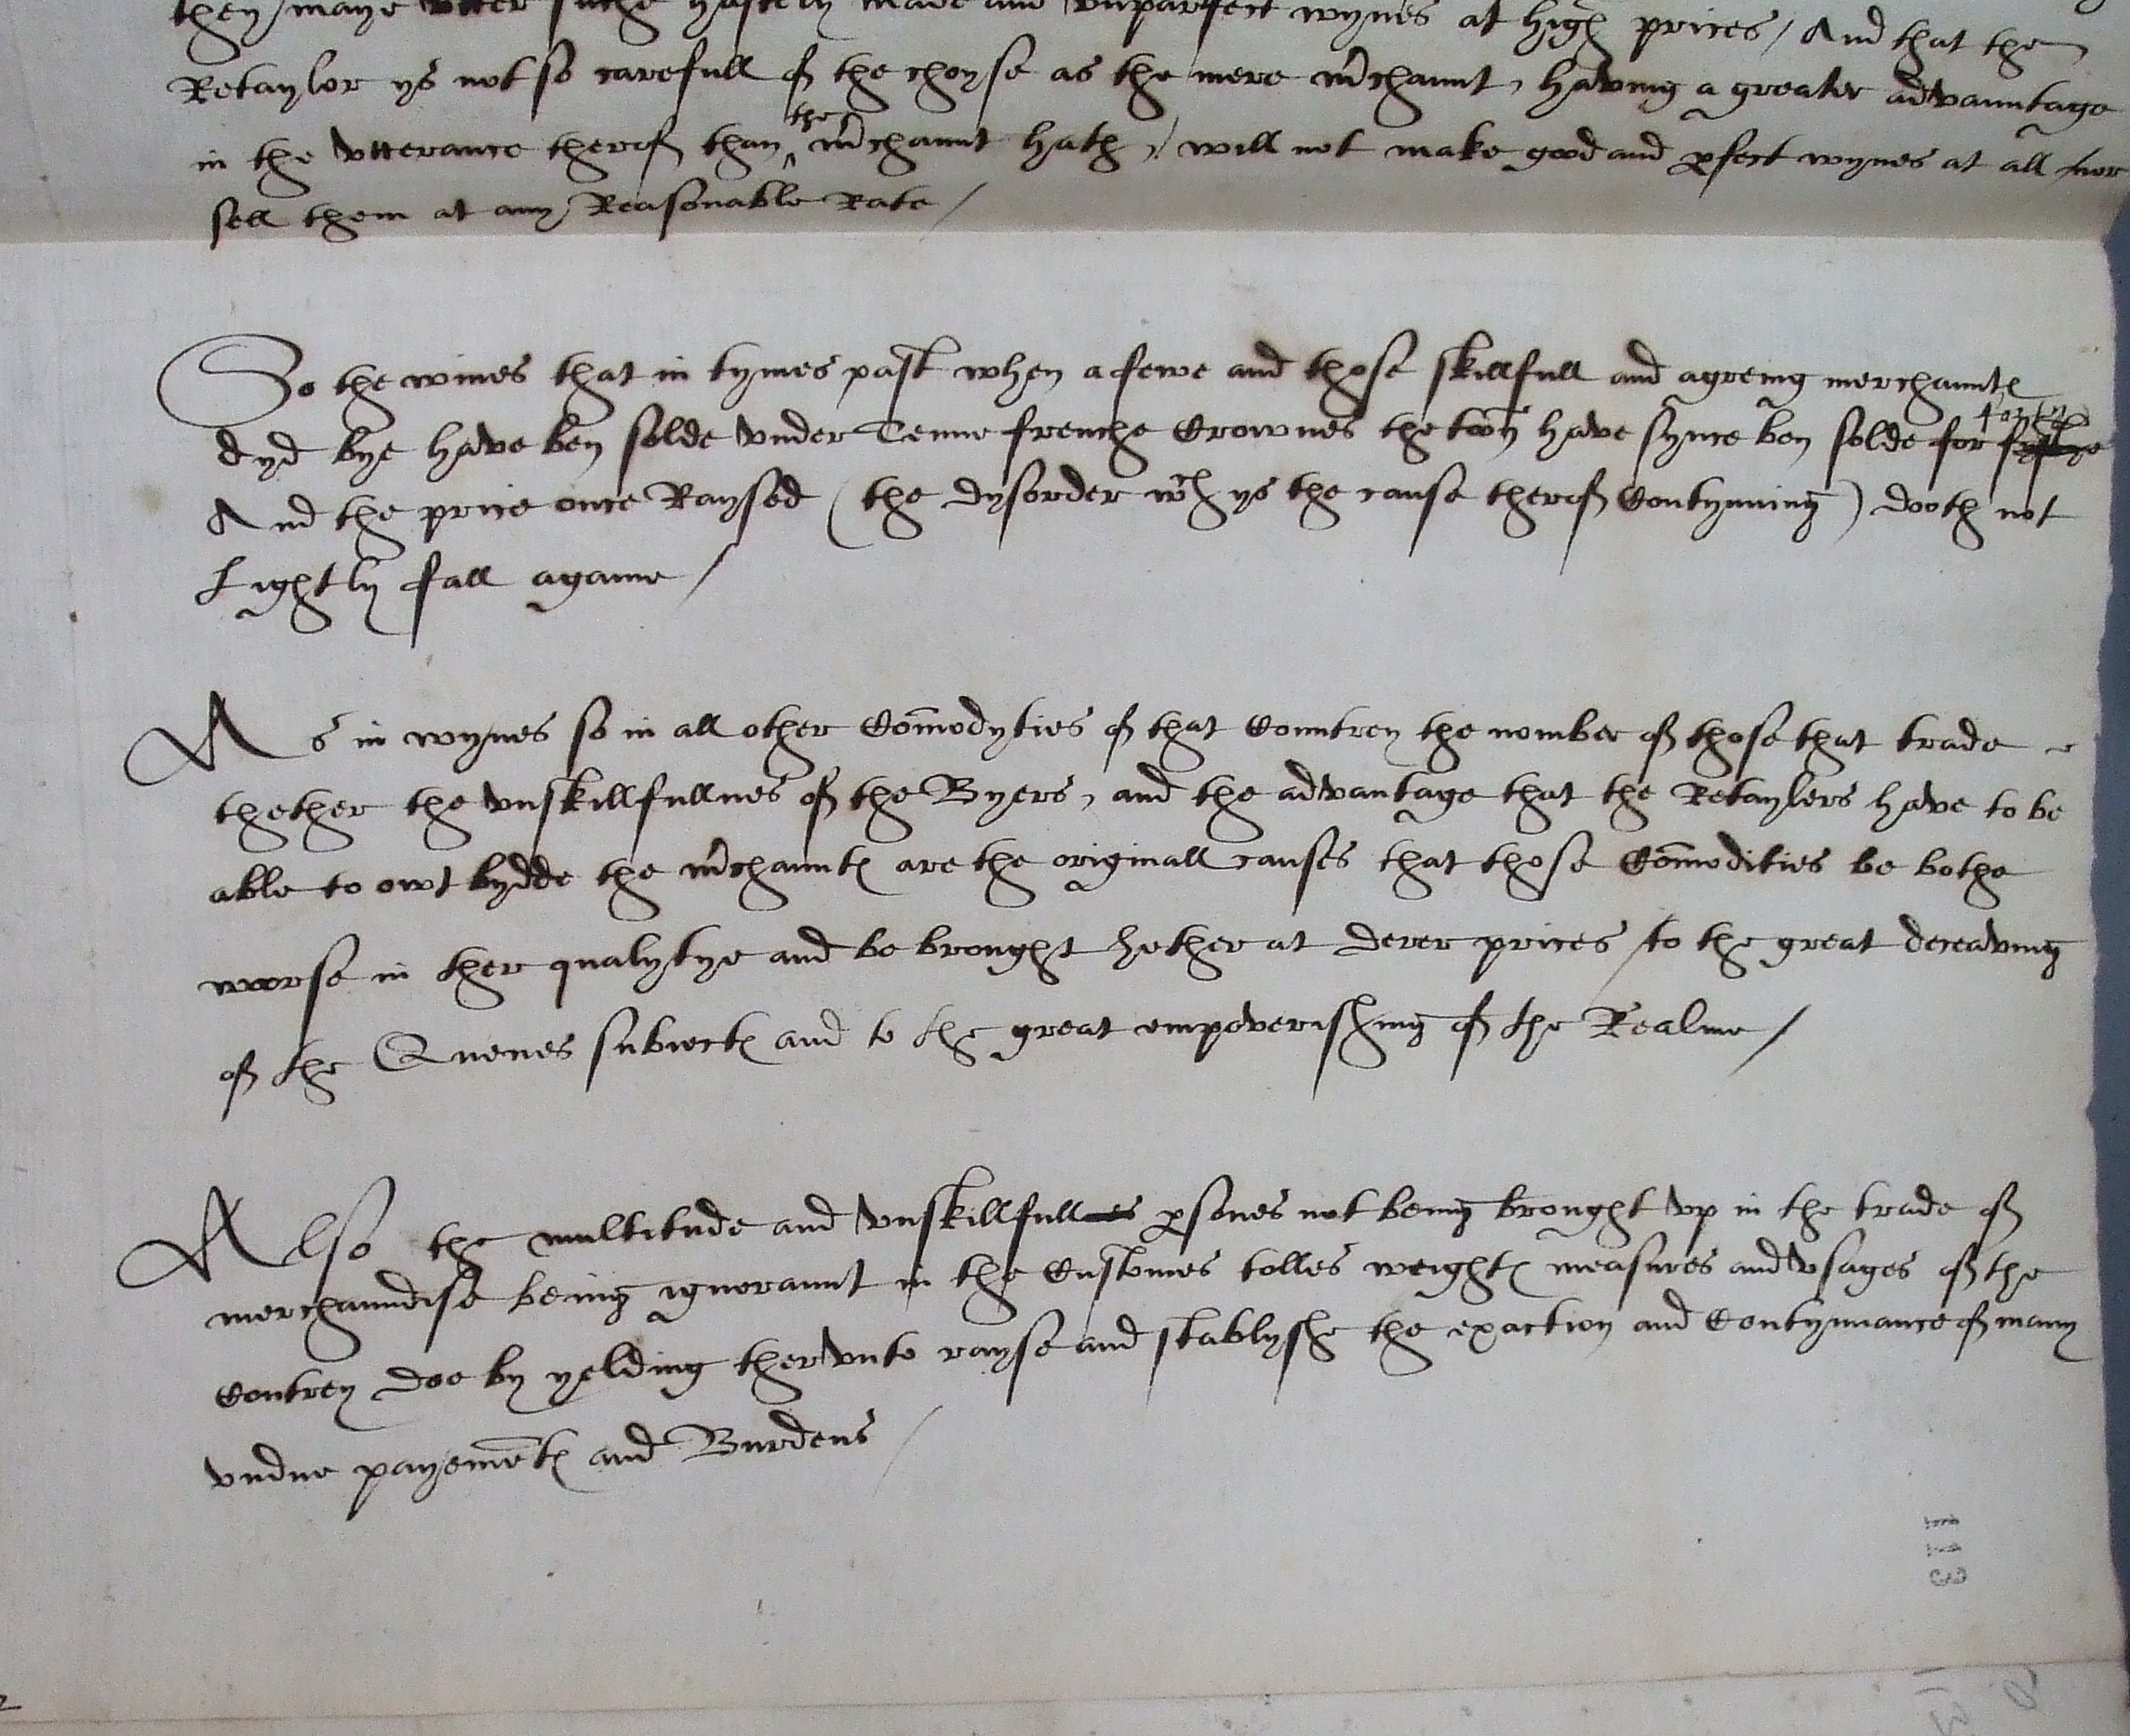 they maye vtter suche hastely made and vnparfect wynes at high prices / And that the
Retaylor ys not so carefull of the choyse as the mere m̃chaunt, having a greater advauntage
in the vtterance therof than ^the m̃chaunt hath, / will not make good and ꝑfect wynes at all nor
sell them at any Reasonable Rate /
So the wines that in tymes past when a fewe and those skillfull and agreing merchauntꝭ
dyd bye have ben solde vnder Tenne frenche Crownes the toñ have synce ben solde for
And the price once Raysed (the dysorder wch ys the cause therof Contynuing) dooth not
Lightly fall againe /
As in wynes so in all other Com̃odyties of that Countrey the nomber of those that trade
thether the vnskillfullnes of the Byers, and the advantage that the Retaylers have to be
able to owt bydde the m̃chauntꝭ are the originall causes that those Com̃odities be bothe
worse in ther qualytye and be brought hether at derer prices / to the great deceaving
of the Quenes subiectꝭ and to the great empoverishing of the Realme /
Also the multitude and vnskillfullnes ꝑsones not being brought vp in the trade of
merchaundise being ignoraunt in the Customes tolles weightꝭ measures and vsages of the
Contrey doo by yelding thervnto rayse and stablyshe the exaction and Contynuance of many
vndue payemẽtꝭ and Burdens /
113